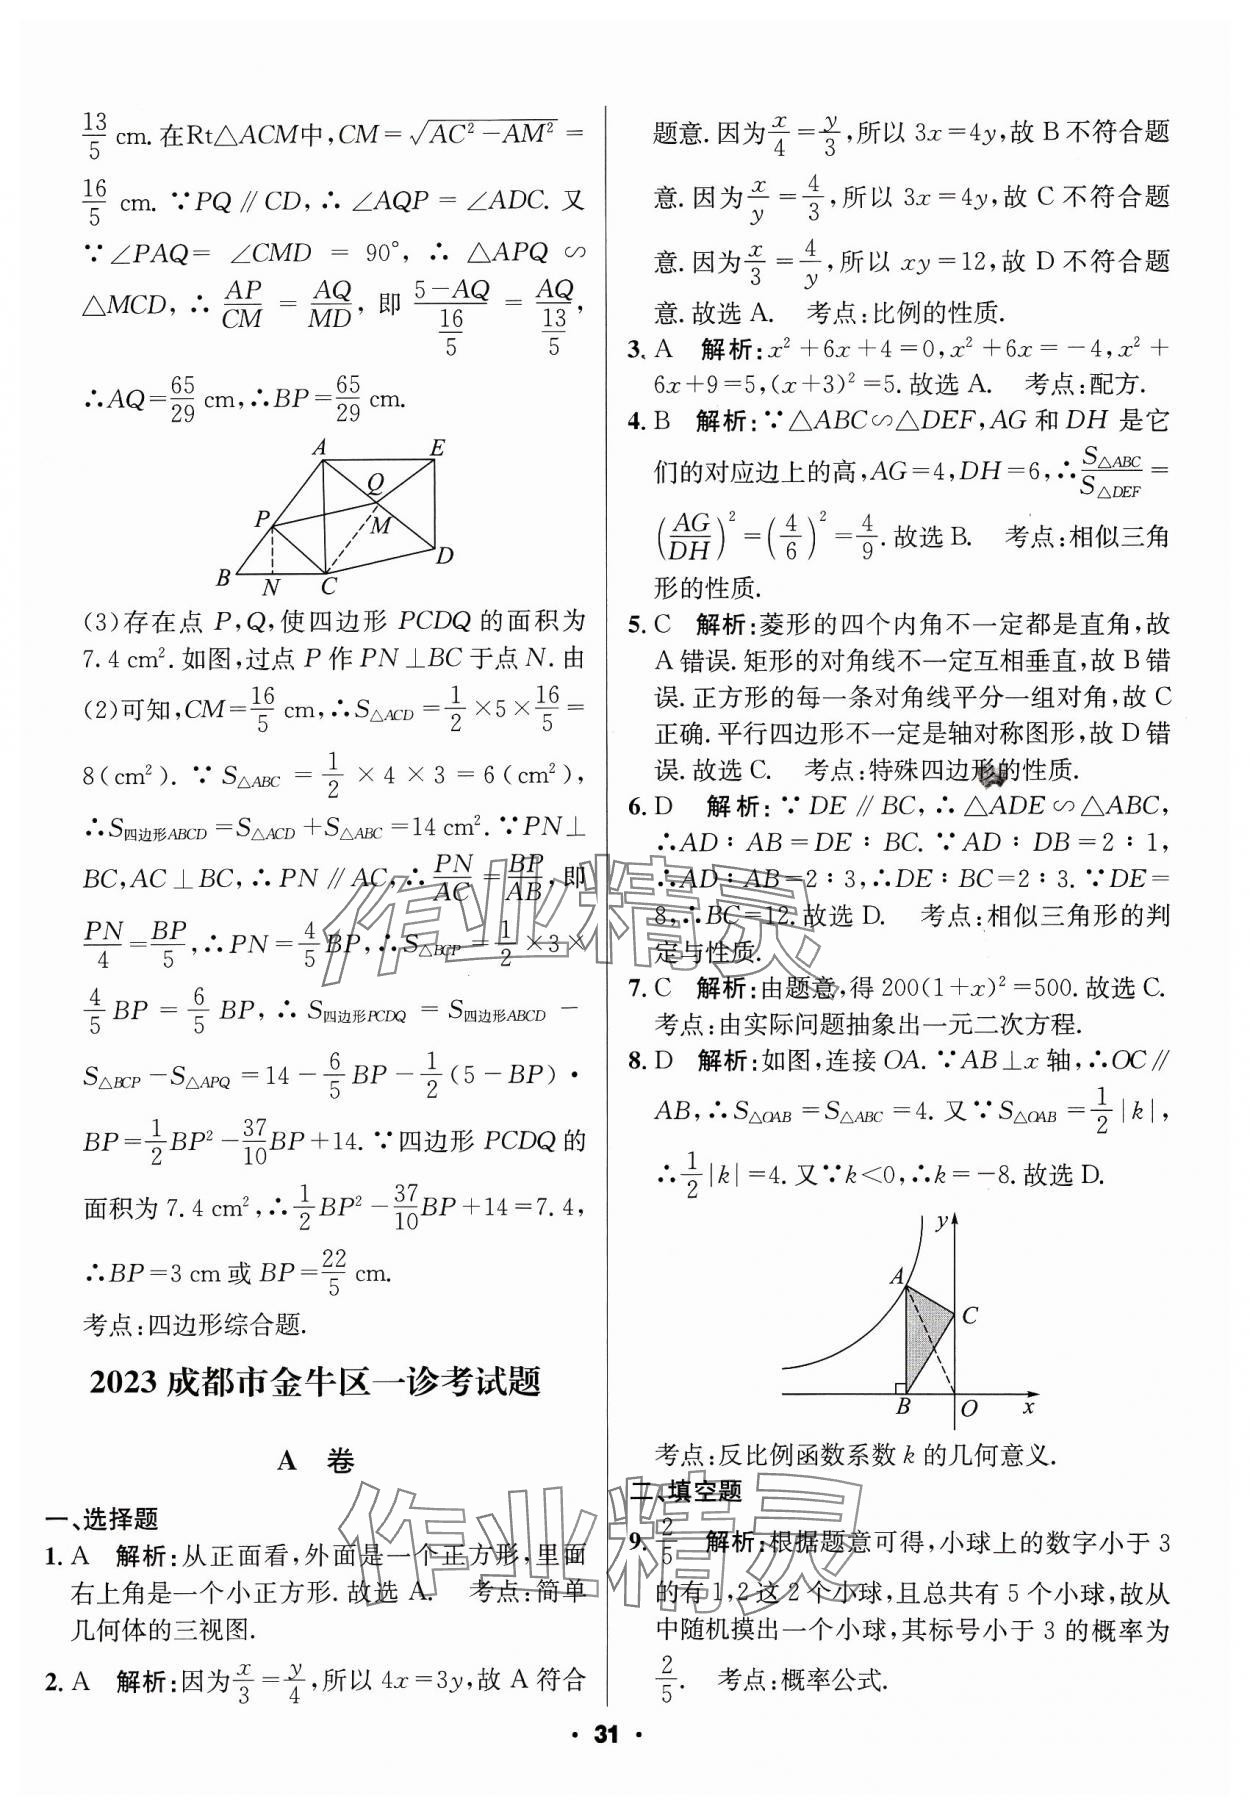 13/5 cm. 在Rt△ACM中,CM=√(AC²-AM²)=
16/5 cm. ∵PQ∥CD,∴∠AQP=∠ADC. 又
∵∠PAQ=∠CMD=90°,∴△APQ∽
△MCD,∴AP/CM=AQ/MD,即(5-AQ)/(16/5)=AQ/(13/5),
∴AQ=65/29 cm,∴BP=65/29 cm.
A E
Q
P M
D
B N C
(3)存在点P,Q,使四边形PCDQ的面积为
7.4 cm². 如图,过点P作PN⊥BC于点N. 由
(2)可知,CM=16/5 cm,∴S△ACD=1/2×5×16/5=
8(cm²). ∵S△ABC=1/2×4×3=6(cm²),
∴S四边形ABCD=S△ACD+S△ABC=14 cm². ∵PN⊥
BC,AC⊥BC,∴PN∥AC,∴PN/AC=BP/AB,即
PN/4=BP/5,∴PN=4/5BP,∴S△BCP=1/2×3×
4/5BP=6/5BP,∴S四边形PCDQ=S四边形ABCD-
S△BCP-S△APQ=14-6/5BP-1/2(5-BP)·
BP=1/2BP²-37/10BP+14. ∵四边形PCDQ的
面积为7.4 cm²,∴1/2BP²-37/10BP+14=7.4,
∴BP=3 cm或BP=22/5 cm.
考点:四边形综合题.
2023成都市金牛区一诊考试题
A 卷
一、选择题
1. A 解析:从正面看,外面是一个正方形,里面
右上角是一个小正方形. 故选A. 考点:简单
几何体的三视图.
2. A 解析:因为x/3=y/4,所以4x=3y,故A符合
题意. 因为x/4=y/3,所以3x=4y,故B不符合题
意. 因为x/y=4/3,所以3x=4y,故C不符合题
意. 因为x/3=4/y,所以xy=12,故D不符合题
意. 故选A. 考点:比例的性质.
3. A 解析:x²+6x+4=0,x²+6x=-4,x²+
6x+9=5,(x+3)²=5. 故选A. 考点:配方.
4. B 解析:∵△ABC∽△DEF,AG和DH是它
们的对应边上的高,AG=4,DH=6,∴S△ABC/S△DEF=
(AG/DH)²=(4/6)²=4/9. 故选B. 考点:相似三角
形的性质.
5. C 解析:菱形的四个内角不一定都是直角,故
A错误. 矩形的对角线不一定互相垂直,故B错
误. 正方形的每一条对角线平分一组对角,故C
正确. 平行四边形不一定是轴对称图形,故D错
误. 故选C. 考点:特殊四边形的性质.
6. D 解析:∵DE∥BC,∴△ADE∽△ABC,
∴AD:AB=DE:BC. ∵AD:DB=2:1,
∴AD:AB=2:3,∴DE:BC=2:3. ∵DE=
8,∴BC=12. 故选D. 考点:相似三角形的判
定与性质.
7. C 解析:由题意,得200(1+x)²=500. 故选C.
考点:由实际问题抽象出一元二次方程.
8. D 解析:如图,连接OA. ∵AB⊥x轴,∴OC∥
AB,∴S△OAB=S△ABC=4. 又∵S△OAB=1/2|k|,
∴1/2|k|=4. 又∵k<0,∴k=-8. 故选D.
y
A
C
B O x
考点:反比例函数系数k的几何意义.
二、填空题
9. 2/5 解析:根据题意可得,小球上的数字小于3
的有1,2这2个小球,且总共有5个小球,故从
中随机摸出一个小球,其标号小于3的概率为
2/5. 考点:概率公式.
· 31 ·
作业精灵
作业精灵